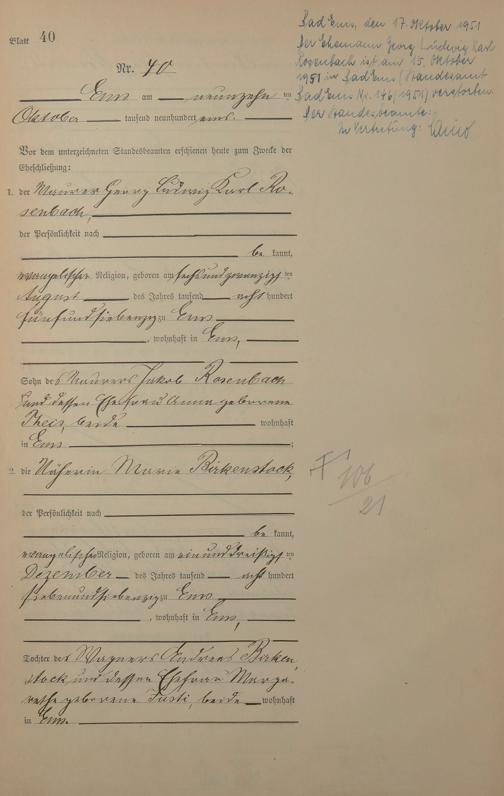 Blatt 40
Bad Ems, den 17. Oktober 1951
Der Ehemann Georg Ludwig Karl
Rosenbach ist am 15. Oktober
1951 in Bad Ems (Standesamt
Bad Ems Nr. 146/1951) verstorben.
Der Standesbeamte:
In Vertretung:
Nr. 40
Ems am neunzehn ten
Oktober tausend neunhundert eins.
Vor dem unterzeichneten Standesbeamten erschienen heute zum Zwecke der
Eheschließung:
1. der Maurer Georg Ludwig Karl Ro-
senbach,
der Persönlichkeit nach
be kannt,
evangelischer Religion, geboren am sechsundzwanzigs ten
August des Jahres tausend acht hundert
fünfundsiebenzig zu Ems
, wohnhaft in Ems,
Sohn des Maurers Jakob Rosenbach
und dessen Ehefrau Anna geborene
Theis, beide wohnhaft
in Ems ;
2. die Näherin Marie Birkenstock,
der Persönlichkeit nach
be kannt,
evangelischer Religion, geboren am einunddreißigs ten
Dezember des Jahres tausend acht hundert
siebenundsiebenzig zu Ems
, wohnhaft in Ems,
Tochter des Wagners Andreas Birken
stock und dessen Ehefrau Marga-
rethe geborene Justi, beide wohnhaft
in Ems.
106
21